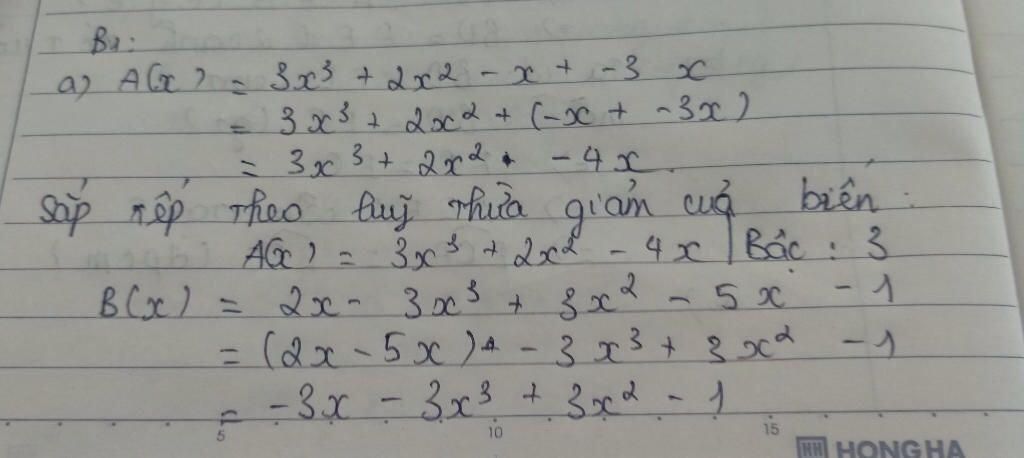 B1:
a) A(x) = 3x³ + 2x² - x + -3 x
= 3x³ + 2x² + (-x + -3x)
= 3x³ + 2x² - 4x
Sắp xếp theo luỹ thừa giảm của biến:
A(x) = 3x³ + 2x² - 4x | Bậc : 3
B(x) = 2x - 3x³ + 3x² - 5x - 1
= (2x - 5x) - 3x³ + 3x² - 1
= -3x - 3x³ + 3x² - 1
5 10 15
HH HONG HA